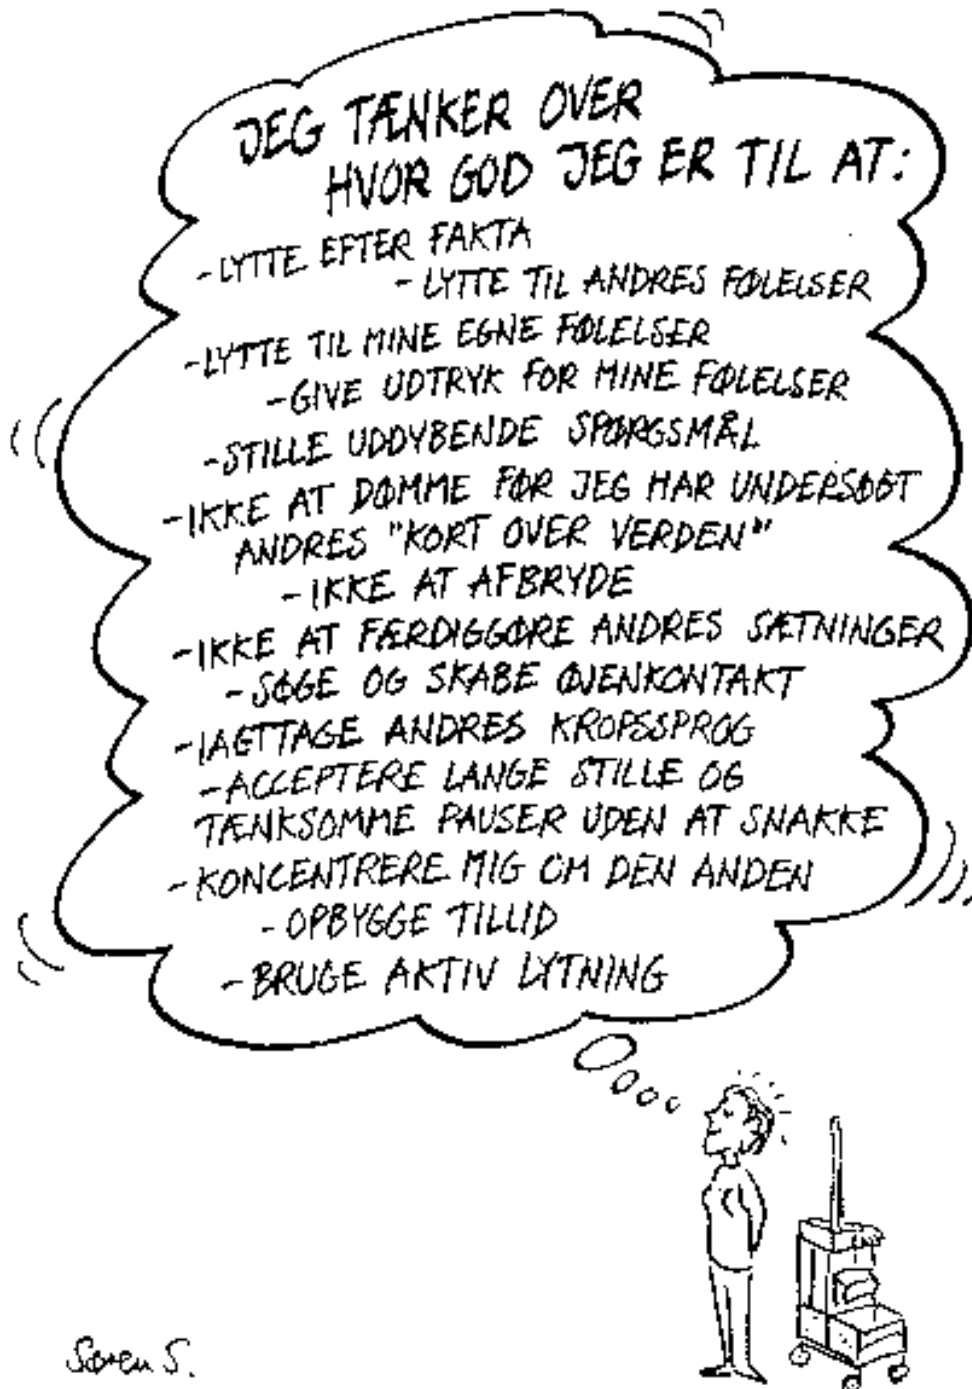 JEG TÆNKER OVER
HVOR GOD JEG ER TIL AT:
- LYTTE EFTER FAKTA
- LYTTE TIL ANDRES FØLELSER
- LYTTE TIL MINE EGNE FØLELSER
- GIVE UDTRYK FOR MINE FØLELSER
- STILLE UDDYBENDE SPØRGSMÅL
- IKKE AT DØMME FØR JEG HAR UNDERSØGT
ANDRES "KORT OVER VERDEN"
- IKKE AT AFBRYDE
- IKKE AT FÆRDIGGØRE ANDRES SÆTNINGER
- SØGE OG SKABE ØJENKONTAKT
- IAGTTAGE ANDRES KROPSSPROG
- ACCEPTERE LANGE STILLE OG
TÆNKSOMME PAUSER UDEN AT SNAKKE
- KONCENTRERE MIG OM DEN ANDEN
- OPBYGGE TILLID
- BRUGE AKTIV LYTNING
Søren S.